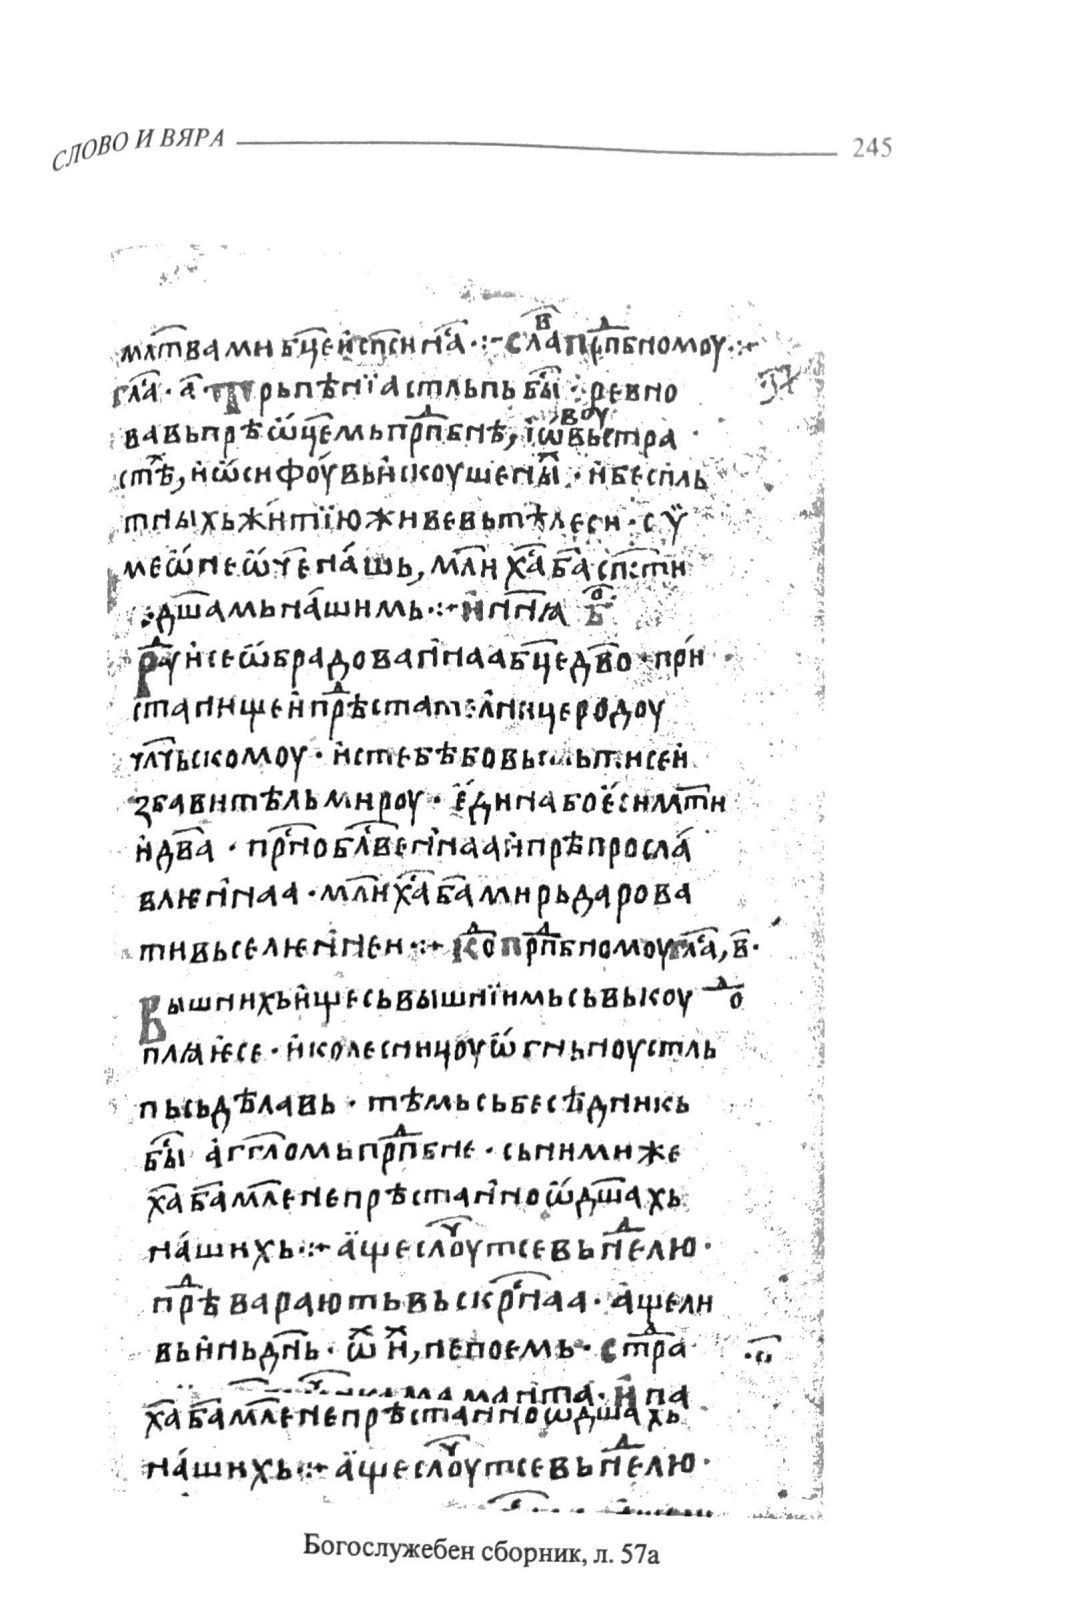 СЛОВО И ВЯРА 245
мл҃твами бц҃еи сп҃си на҃ ·:· сла́в прⷣпбномоу ·:·
гла҃ · а҃ · Трьпѣнїа стльпь бы҃ · ревно
57
вавь прѣѡ҃цемь прⷣпбне, і҆ѡ́вꙋ вь стра
стⷯѣ, и҆ ѡ҆сифоу вь и҆скоушеныⷯ · и҆ беспль
тныхь житїю живе вь тѣлеси · сѵ̈
меѡ҆не ѡ҆ч҃е на́шь, мл҃и ха҃ ба҃ сп҃сти
дш҃амь на́шимь ·:· и҆ нн҃ꙗ б҃ⷪ
Раⷣуи се ѡ҆брадованнаа бц҃е дв҃о · при́
станище и҆ прⷣѣстател҆нице родоу
чл҃чьскомоу · и҆с тебѣ бо вь
збавитѣль мироу · е҆ди́на бо е҆си мт҃и
и҆ дв҃а · при́но бл҃венн҆аа и҆ прѣпросла́
влѥнн҆аа · мл҃и ха҃ ба҃ мирь дарова
ти вьселѥнн҆еи ·:· Коⷣ прⷣпбномоу гла҃, в҃ ·
Вышнихь и҆ще сь вышнїимь сьвькоу
поⷣ
плꙗѥ҆ се · и҆ колесницоу ѡ҆гньноу стль
пь сьдѣлавь · тѣмь сьбесѣдникь
бы҃ а҆гг҃ломь прⷣпбне · сь ними же
ха҃ ба҃ мл҃е непрѣстанн҆о ѡ҆ дш҃ахь
на́шихь ·:· а҆ще слоу҃ч се вь неⷣлю ·
прⷣѣварають вьскрⷭ҇наа · а҆ще ли
вь и҆нь дн҃ь · ѡ҆ⷯ ниⷯ, не поемь · страⷣ
мамонта · И҆ па
ха҃ ба҃ мл҃е непрѣстанно ѡ҆ дш҃ахь
на́шихь ·:· а҆ще слоу҃ч се вь неⷣлю ·
Богослужебен сборник, л. 57а